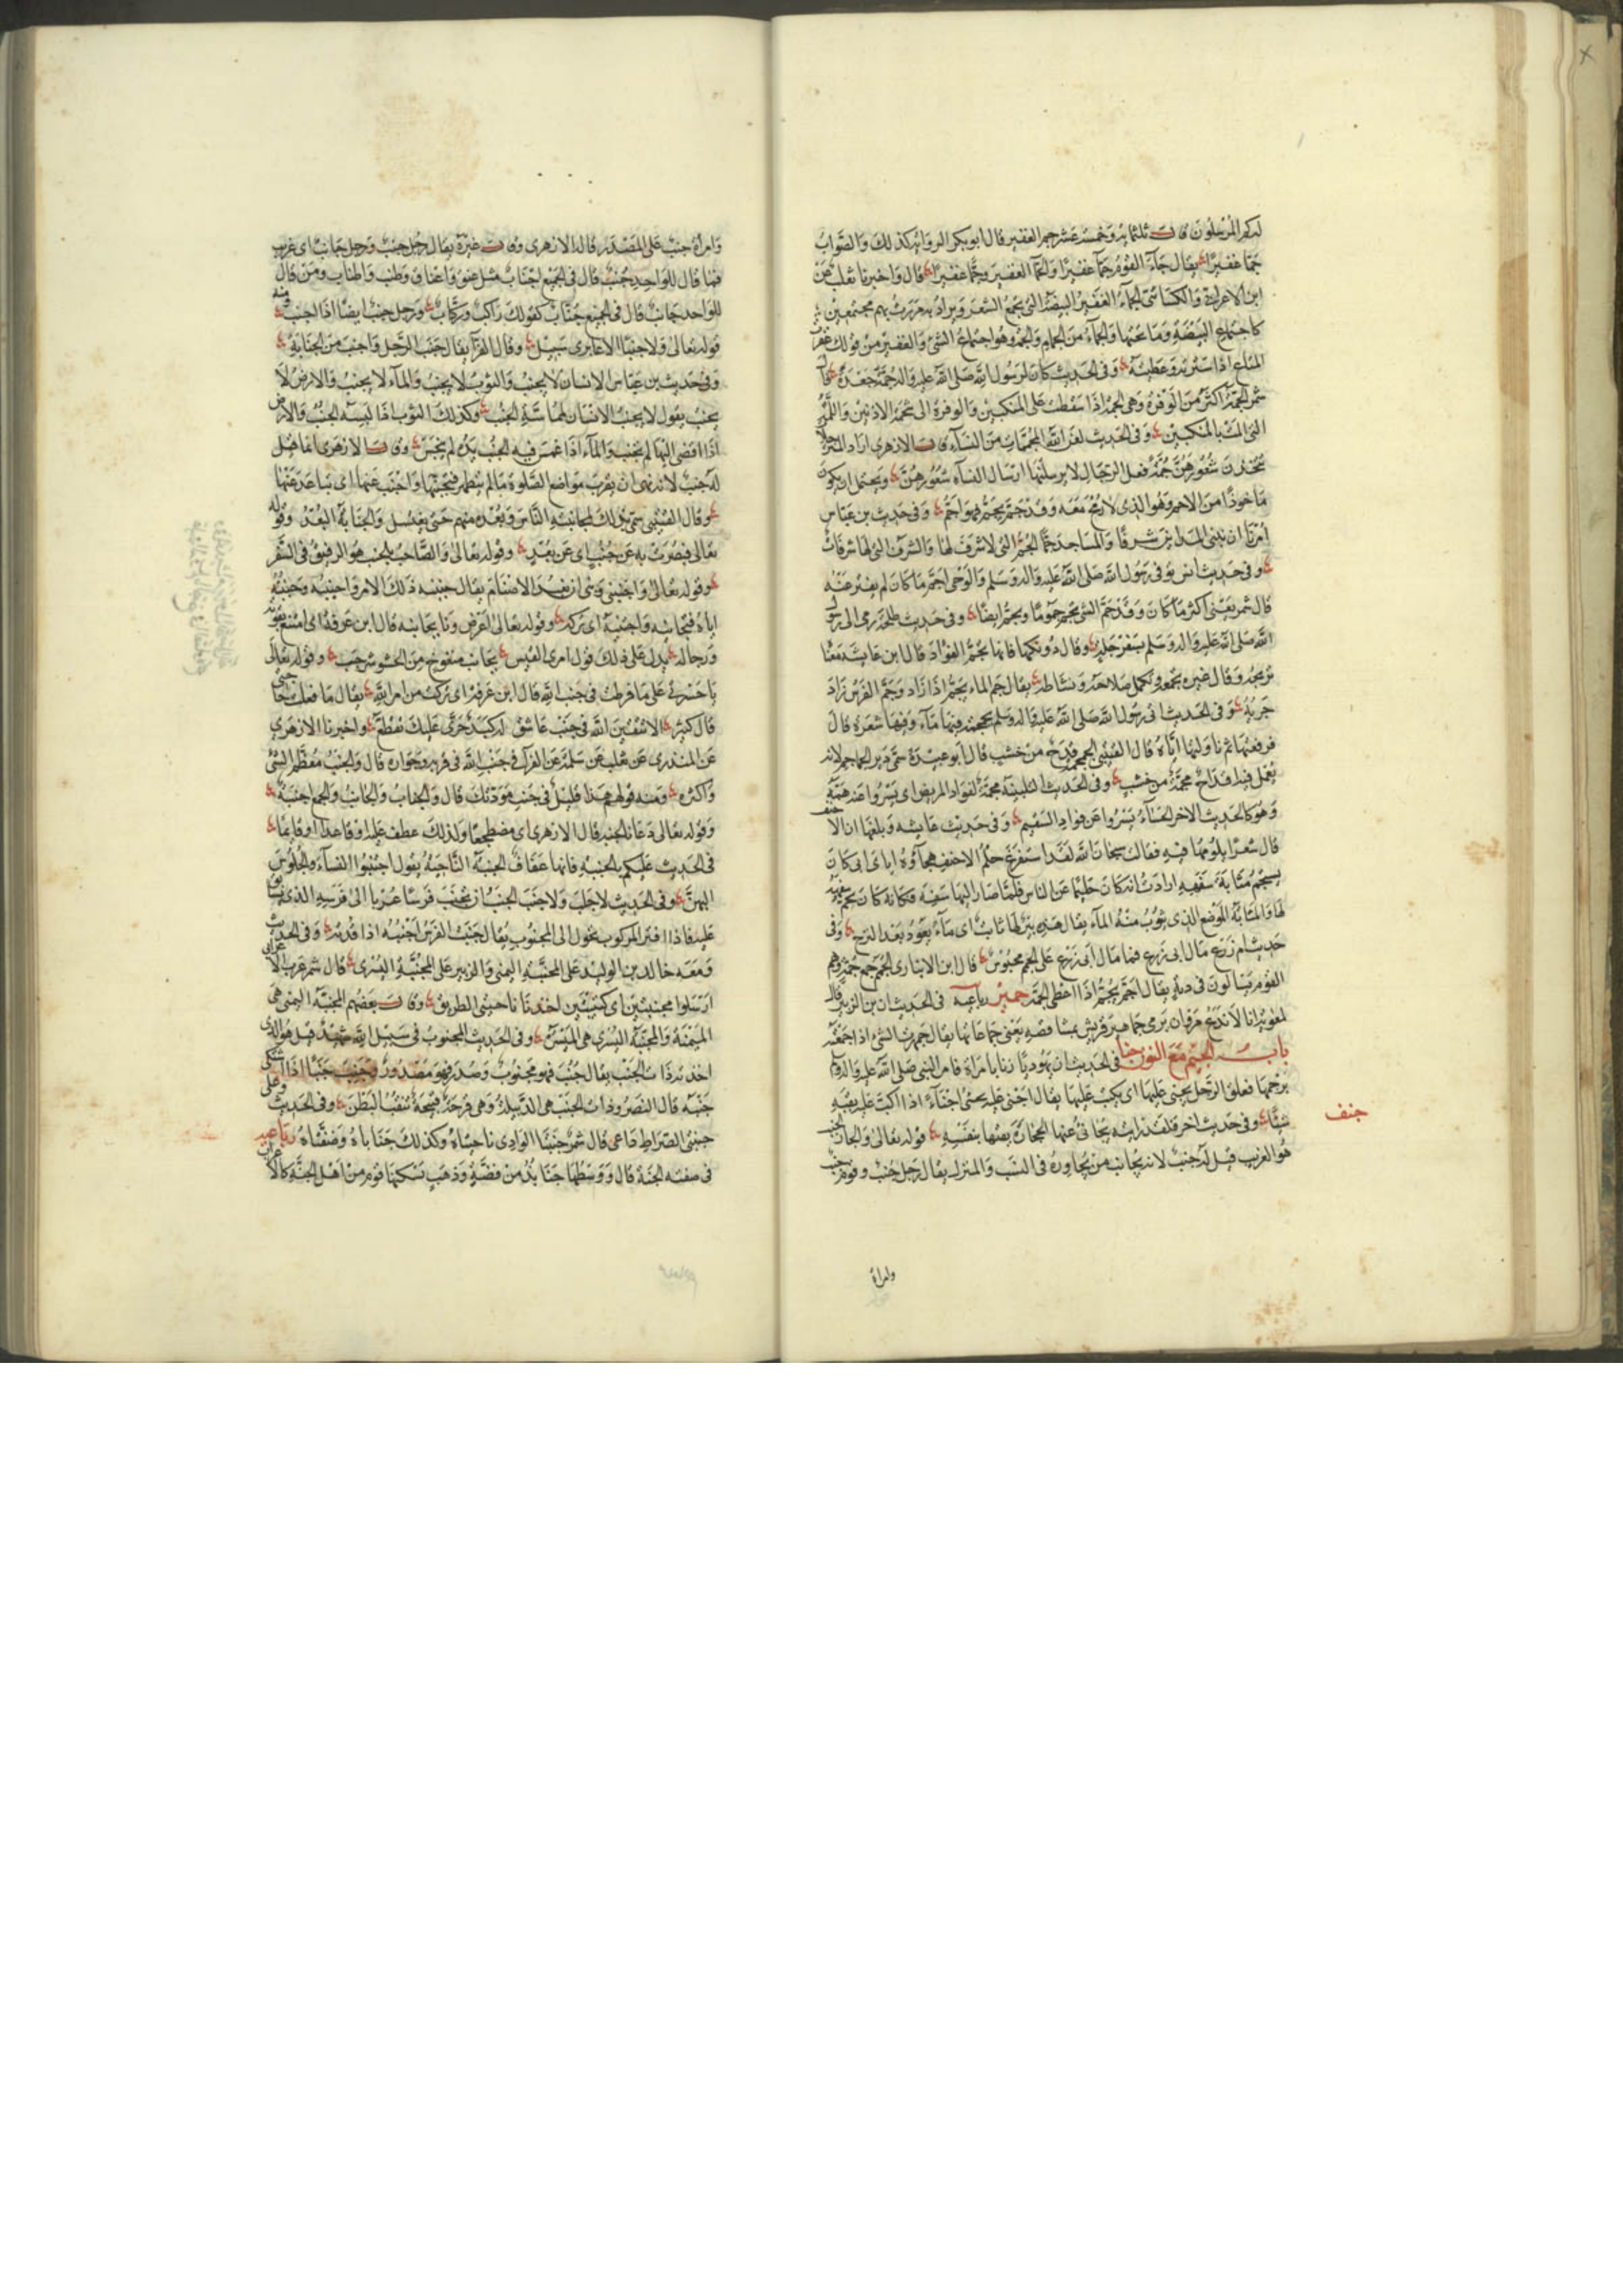 لدكم المرسلون قال ثلثمائة وخمسة عشر جم الغفير قال ابو بكر الرواية كذلك والصواب
جما غفيرا يقال جاء القوم جما غفيرا والجماء الغفير وجما غفيرا قال واخبرنا ثعلب عن
ابن الاعرابي والكسائي الجماء الغفير البيضة التي تجمع الشعر ويراد به مررت بهم مجتمعين
كاجتماع البيضة وما تحتها والجماء من الجمام والجمة وهو اجتماع الشيء والغفير من قولك غفرت
المتاع اذا سترته وغطيته وفي الحديث كان لرسول الله صلى الله عليه واله جمة جعدة قال
شمر الجمة اكثر من الوفرة وهي الجمة اذا سقطت على المنكبين والوفرة الى شحمة الاذنين واللمة
التي المت بالمنكبين وفي الحديث لعن الله المجممات من النساء قال الازهري اراد المترجلات
يتخذن شعورهن جمة فعل الرجال لا يرسلنها ارسال النساء شعورهن ويحتمل ان يكون
ماخوذا من الاجم وهو الذي لا رمح معه وقد جم يجم فهو اجم وفي حديث بن عباس
امرنا ان نبني المداين شرفا والمساجد جما الجم التي لا شرف لها والشرف التي لها شرفات
وفي حديث انس توفي رسول الله صلى الله عليه واله وسلم والوحي اجم ما كان لم يفتر عنه
قال شمر يعني اكثر ما كان وقد جم الشيء يجم جموما ويجم ايضا وفي حديث طلحة رمى الى رسول
الله صلى الله عليه واله وسلم بسفرجلة وقال دونكها فانها تجم الفؤاد قال ابن عايشة معنا
تريحه وقال غيره تجمعه وتكمل صلاحه ونشاطه يقال جم الماء يجم اذا زاد وجم الفرس زاد
جريه وفي الحديث اتي رسول الله صلى الله عليه واله وسلم بجمجمة فيها ماء وفيها شعرة قال
فرفعتها ثم ناولتها اياه قال القتيبي الجمجمة قدح من خشب قال ابو عبيدة سمي دير الجماجم لانه
يعمل فيه اقداح من خشب وفي الحديث التلبينة مجمة لفؤاد المريض اي يسروا عنه همه
وهو كالحديث الاخر الحساء يسروا عن فواد السقيم وفي حديث عايشة وبلغها ان الاحنف
قال شعرا يلومها فيه فقالت سبحان الله لقد استفرغ حلم الاحنف هجاؤه اياي ابي كان
يستجم مثابة سفهه ارادت انه كان حليما عن الناس فلما صار اليها سفه فكانه كان يجم سفهه
لها والمثابة الموضع الذي يثوب منه الماء يقال هذه بئر لها ثائب اي ماء يعود بعد النزح وفي
حديث ام زرع مال ابي زرع فما مال ابي زرع على الجمم محبوس قال ابن الانباري الجمم جمع جمة وهم
القوم يسالون في دية يقال اجم يجم اذا اعطى الجمة جمهر رباعيه في الحديث ان بن الزبير قال
لمعوية انا لا ندع مروان يرمي جماهير قريش بمشاقصه يعني جماعاتها يقال جمهرت الشيء اذا جمعته
باب الجيم مع النون جنا في الحديث ان يهوديا زنا بامراة فامر النبي صلى الله عليه واله
برجمها فعلق الرجل يجني عليها اي يكب عليها يقال اجنى عليه يجني اجناء اذا اكب عليه يقيه
شيئا وفي حديث اخر فلقد رايته يجانئ عنها الحجارة يقيها بنفسه قوله تعالى والجار الجنب
هو الغريب قيل له جنب لانه يجانب من يجاوره في النسب والمنزل يقال رجل جنب وقوم جنب
جنف
وامراة
وامراة جنب على المصدر قاله الازهري وقال غيره يقال رجل جنب ورجل جانب اي غريب
فمن قال للواحد جنب قال في الجميع اجناب مثل عنق واعناق وطنب واطناب ومن قال
للواحد جانب قال في الجميع جناب كقولك راكب وركاب ورجل جنب ايضا اذا اجنب ومنه
قوله تعالى ولا جنبا الا عابري سبيل وقال الفراء يقال جنب الرجل واجنب من الجنابة
وفي حديث بن عباس الانسان لا يجنب والثوب لا يجنب والماء لا يجنب والارض لا
يجنب يقول لا يجنب الانسان لمماسة الجنب وكذلك الثوب اذا لبسه الجنب والارض
اذا افضى اليها لم تجنب والماء اذا غمس فيه الجنب يده لم ينجس وقال الازهري انما قيل
له جنب لانه نهي ان يقرب مواضع الصلوة ما لم يتطهر فتجنبها واجنب عنها اي تباعد عنها
وقال القتيبي سمي بذلك لمجانبته الناس وبعده منهم حتى يغتسل والجنابة البعد وقوله
تعالى فبصرت به عن جنب اي عن بعد وقوله تعالى والصاحب بالجنب هو الرفيق في السفر
وقوله تعالى واجنبني وبني ان نعبد الاصنام يقال جنبته ذلك الامر واجنبته وجنبته
اياه فتجانبه واجتنبه اي تركه وقوله تعالى اعرض ونا بجانبه قال ابن عرفة اي امتنع بقوته
ورجاله يدل على ذلك قول امرئ القيس بجانب منفوخ من الحشو شرجب وقوله تعالى
يا حسرتي على ما فرطت في جنب الله قال ابن عرفة اي تركت من امر الله يقال ما فعلت في جنب حاجتي
قال كثير الا تتقين الله في جنب عاشق له كبد حرى عليك تقطع واخبرنا الازهري
عن المنذري عن ثعلب عن سلمة عن الفراء في جنب الله في قربه وجواره قال والجنب معظم الشيء
واكثره ومنه قولهم هذا قليل في جنب مودتك قال والجناب والجانب والجمع اجنبة
وقوله تعالى دعانا لجنبه قال الازهري اي مضطجعا ولذلك عطف عليه او قاعدا او قائما
في الحديث عليكم بالجنبة فانها عفاف الجنبة الناحية يقول اجتنبوا النساء والجلوس
اليهن وفي الحديث لا جلب ولا جنب الجنب ان تجنب فرسا عريا الى فرسه الذي يسابق
عليه فاذا فتر المركوب تحول الى المجنوب يقال جنبت الفرس اجنبه اذا قدته وفي الحديث
ومعه خالد بن الوليد على المجنبة اليمنى والزبير على المجنبة اليسرى قال شمر عن ابن الاعرابي
ارسلوا مجنبتين اي كتيبتين اخذتا ناحيتي الطريق وقال بعضهم المجنبة اليمنى هي
الميمنة والمجنبة اليسرى هي الميسرة وفي الحديث المجنوب في سبيل الله شهيد قيل هو الذي
اخذته ذات الجنب يقال جنب فهو مجنوب وصدر فهو مصدور وجنب جنبا اذا اشتكى
جنبه قال النضر وذات الجنب هي الدبيلة وهي قرحة قبيحة تثقب البطن وفي الحديث وعلى
جنبتي الصراط داعي قال شمر جنبتا الوادي ناحيتاه وكذلك جناباه وضفتاه رباعيه
في صفة الجنة قال ووسطها جنابذ من فضة وذهب تسكنها قوم من اهل الجنة كالاعراب